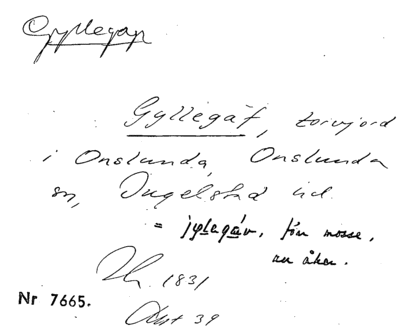 Gyllegap
Gyllegåf, torvjord
i Onslunda, Onslunda
sn, Ingelstad hd.
= jylegáv, förr mosse,
nu åker.
1831
Nr 7665.
39